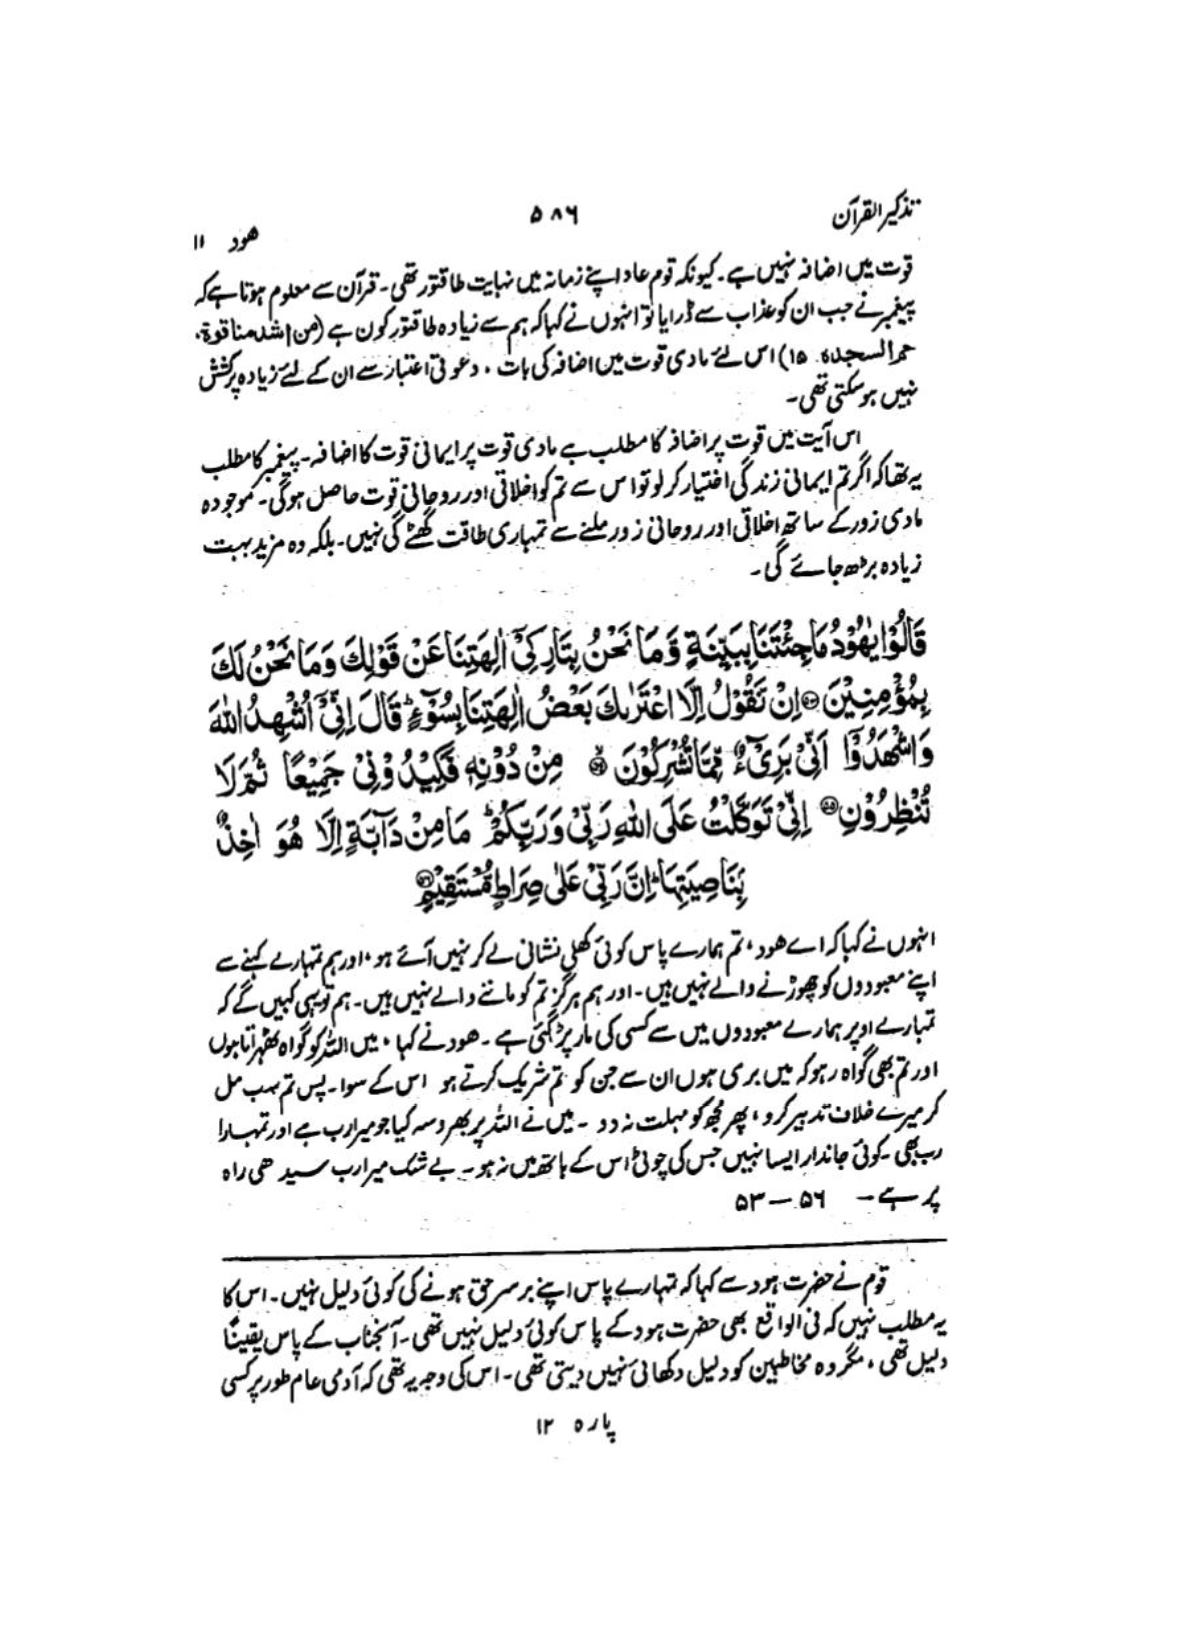 تذکیر القرآن
۵۸۶
هود ۱۱
قوت میں اضافہ نہیں ہے۔ کیونکہ قوم عاد اپنے زمانہ میں نہایت طاقتور تھی۔ قرآن سے معلوم ہوتا ہے کہ
پیغمبر نے جب ان کو عذاب سے ڈرایا تو انہوں نے کہا کہ ہم سے زیادہ طاقتور کون ہے (من اشد منا قوۃ،
حم السجدہ ۱۵) اس لئے مادی قوت میں اضافہ کی بات، دعوتی اعتبار سے ان کے لئے زیادہ پرکشش
نہیں ہوسکتی تھی۔
اس آیت میں قوت پر اضافہ کا مطلب ہے مادی قوت پر ایمانی قوت کا اضافہ۔ پیغمبر کا مطلب
یہ تھا کہ اگر تم ایمانی زندگی اختیار کرلو تو اس سے تم کو اخلاقی اور روحانی قوت حاصل ہوگی۔ موجودہ
مادی زور کے ساتھ اخلاقی اور روحانی زور ملنے سے تمہاری طاقت گھٹے گی نہیں۔ بلکہ وہ مزید بہت
زیادہ بڑھ جائے گی۔
قَالُوْا يٰهُوْدُ مَا جِئْتَنَا بِبَيِّنَةٍ وَّمَا نَحْنُ بِتَارِكِيْٓ اٰلِهَتِنَا عَنْ قَوْلِكَ وَمَا نَحْنُ لَكَ
بِمُؤْمِنِيْنَ ۝۵۳ اِنْ نَّقُوْلُ اِلَّا اعْتَرٰىكَ بَعْضُ اٰلِهَتِنَا بِسُوْٓءٍ ۭ قَالَ اِنِّىْٓ اُشْهِدُ اللّٰهَ
وَاشْهَدُوْٓا اَنِّىْ بَرِيْۗءٌ مِّمَّا تُشْرِكُوْنَ ۝۵۴ مِنْ دُوْنِهٖ فَكِيْدُوْنِيْ جَمِيْعًا ثُمَّ لَا
تُنْظِرُوْنِ ۝۵۵ اِنِّىْ تَوَكَّلْتُ عَلَي اللّٰهِ رَبِّيْ وَرَبِّكُمْ ۭ مَا مِنْ دَاۗبَّةٍ اِلَّا هُوَ اٰخِذٌۢ
بِنَاصِيَتِهَا ۭ اِنَّ رَبِّيْ عَلٰي صِرَاطٍ مُّسْتَقِيْمٍ ۝۵۶
انہوں نے کہا کہ اے ھود، تم ہمارے پاس کوئی کھلی نشانی لے کر نہیں آئے ہو، اور ہم تمہارے کہنے سے
اپنے معبودوں کو چھوڑنے والے نہیں ہیں۔ اور ہم ہرگز تم کو ماننے والے نہیں ہیں۔ ہم تو یہی کہیں گے کہ
تمہارے اوپر ہمارے معبودوں میں سے کسی کی مار پڑگئی ہے۔ ھود نے کہا، میں اللہ کو گواہ ٹھہراتا ہوں
اور تم بھی گواہ رہو کہ میں بری ہوں ان سے جن کو تم شریک کرتے ہو اس کے سوا۔ پس تم سب مل
کر میرے خلاف تدبیر کرو، پھر مجھ کو مہلت نہ دو۔ میں نے اللہ پر بھروسہ کیا جو میرا رب ہے اور تمہارا
رب بھی۔ کوئی جاندار ایسا نہیں جس کی چوٹی اس کے ہاتھ میں نہ ہو۔ بے شک میرا رب سیدھی راہ
پر ہے۔ ۵۶—۵۳
قوم نے حضرت ہود سے کہا کہ تمہارے پاس اپنے برسرحق ہونے کی کوئی دلیل نہیں۔ اس کا
یہ مطلب نہیں کہ فی الواقع بھی حضرت ہود کے پاس کوئی دلیل نہیں تھی۔ آنجناب کے پاس یقیناً
دلیل تھی، مگر وہ مخاطبین کو دلیل دکھائی نہیں دیتی تھی۔ اس کی وجہ یہ تھی کہ آدمی عام طور پر کسی
پارہ ۱۲